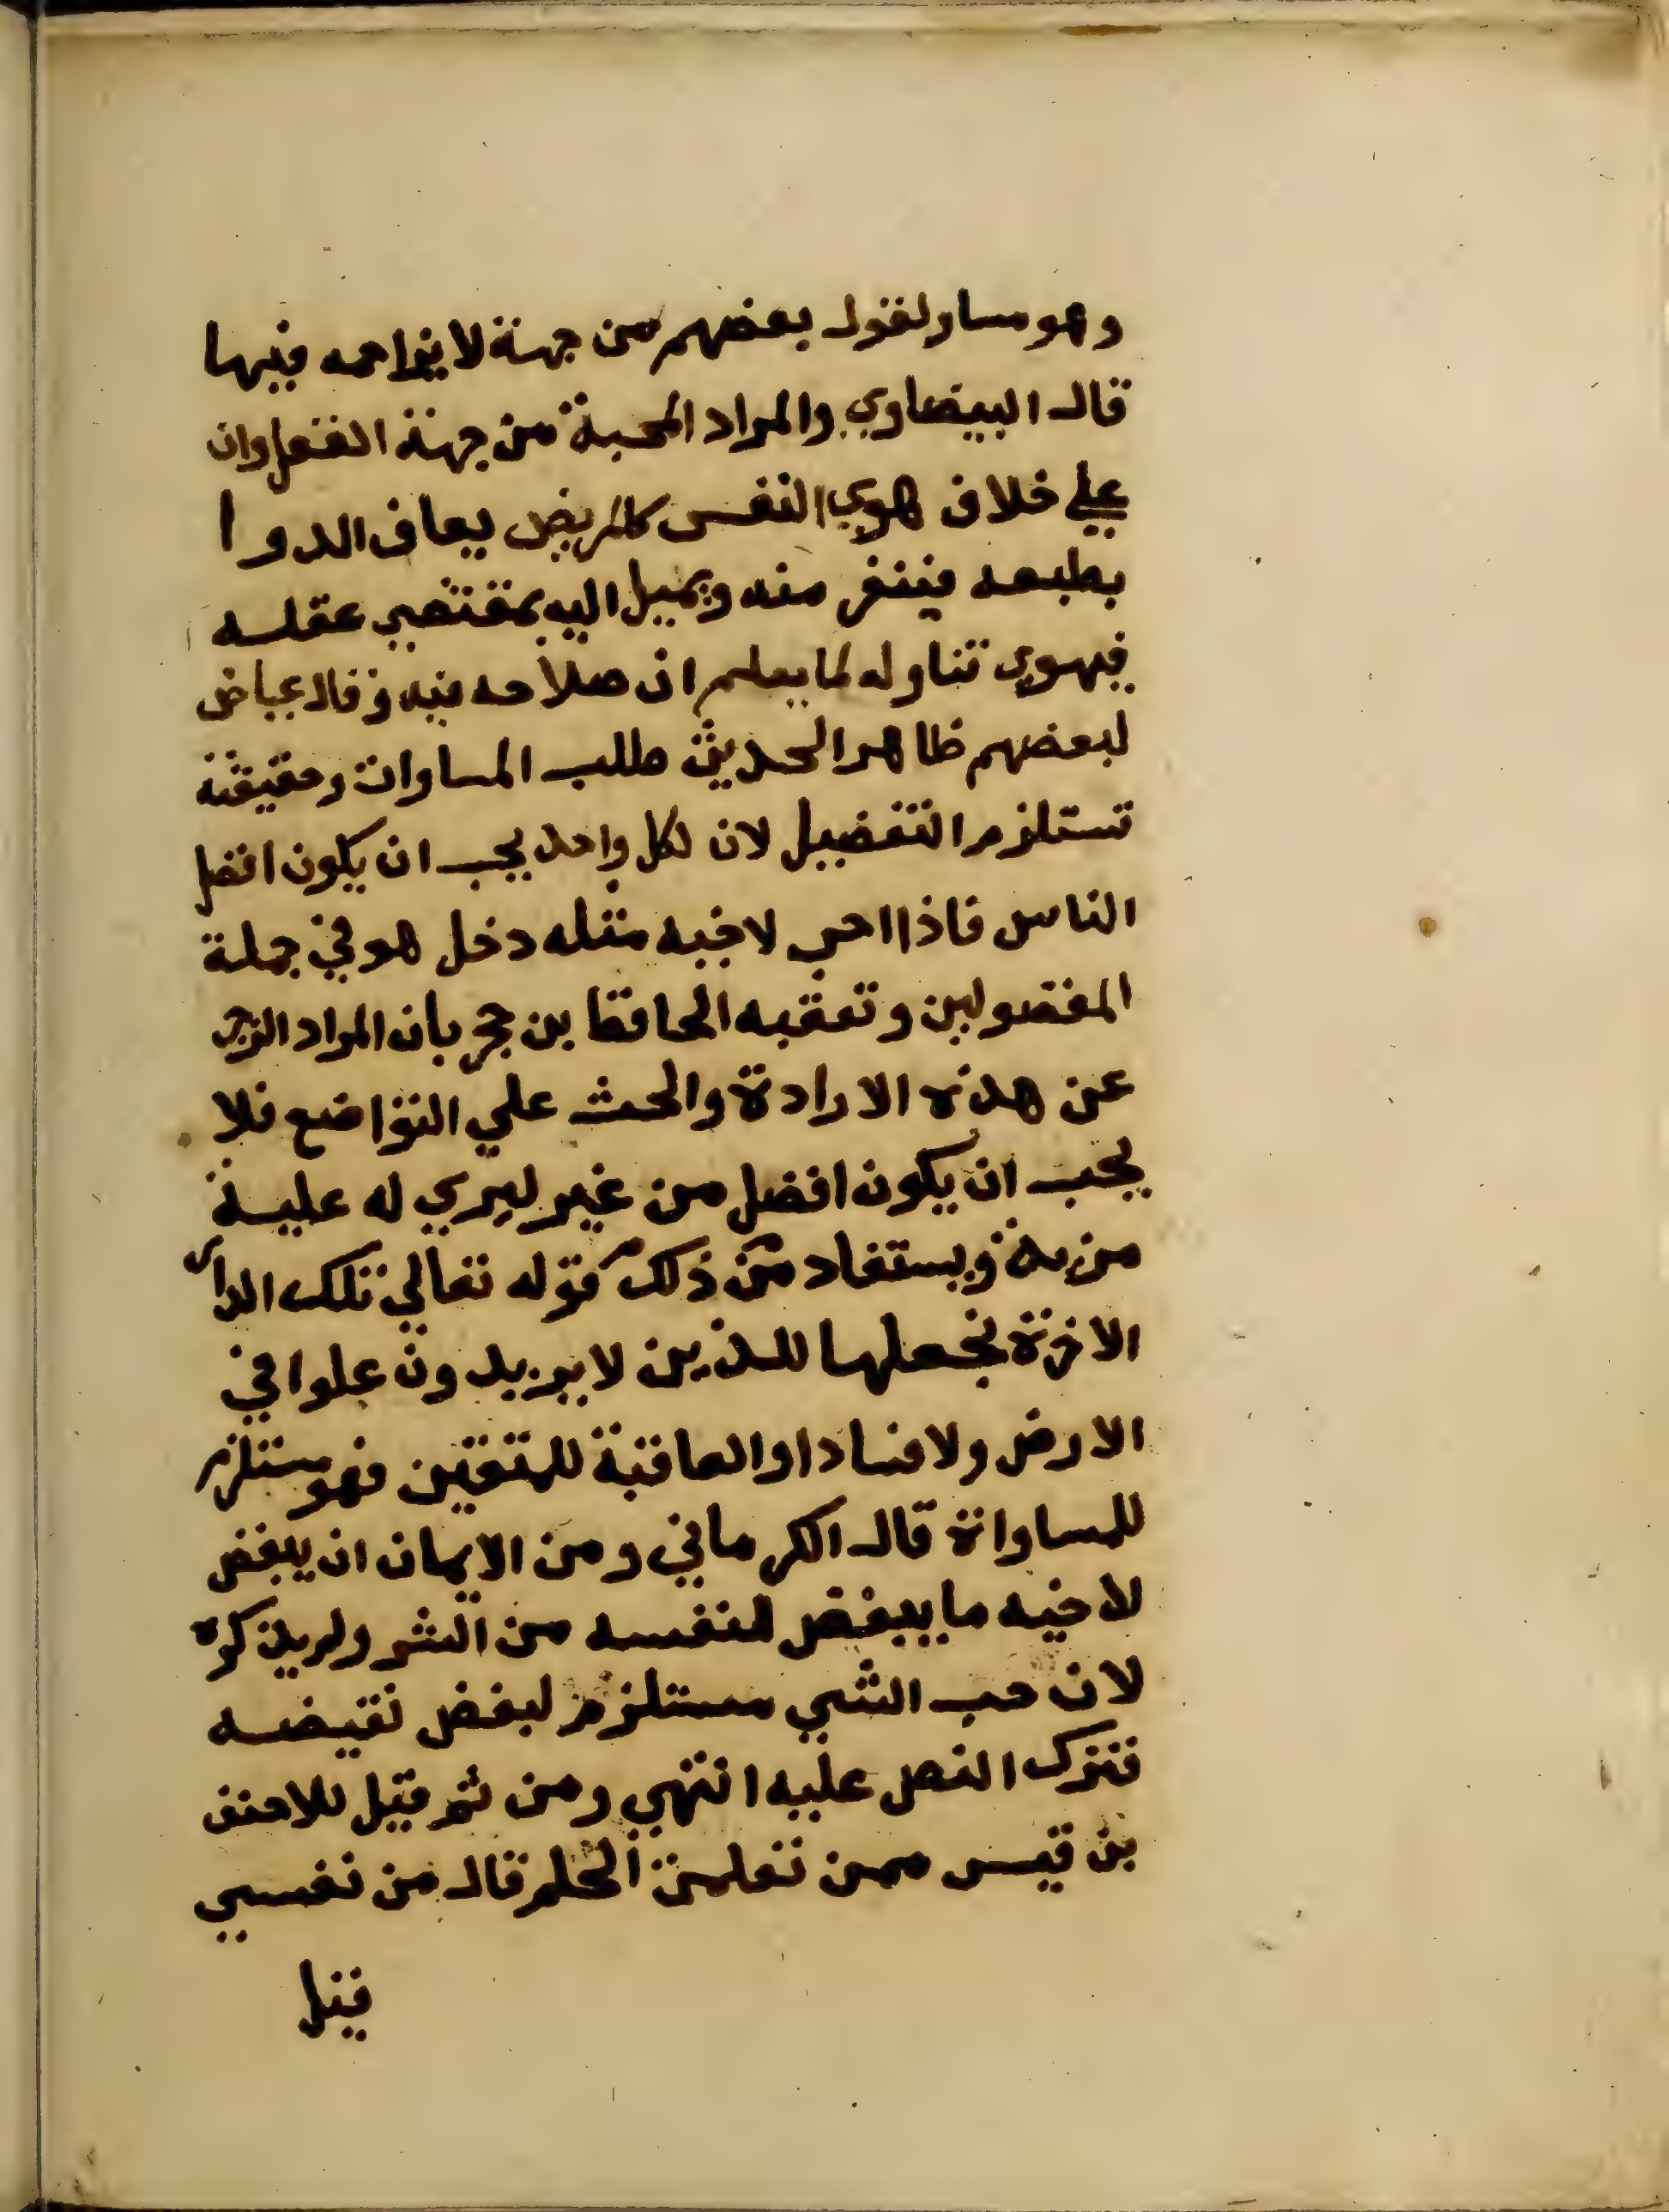 وهو مساو لقول بعضهم من جهة لا يزاحمه فيها
قال البيضاوي والمراد المحبة من جهة العقل وان
علي خلاف هوي النفس كالمريض يعاف الدوا
بطبعه فينفر منه ويميل اليه بمقتضي عقله
فيهوي تناوله لما يعلم ان صلاحه فيه وقال عياض
لبعضهم ظاهر الحديث طلب المساوات وحقيقته
تستلزم التفضيل لان لكل واحد يحب ان يكون افضل
الناس فاذا احب لاخيه مثله دخل هو في جملة
المفضولين وتعقبه الحافظ بن حجر بان المراد الزجر
عن هذه الارادة والحث علي التواضع فلا
يحب ان يكون افضل من غير ليري له عليه
مزية ويستفاد من ذلك قوله تعالي تلك الدار
الاخرة نجعلها للذين لا يريدون علوا في
الارض ولا فسادا والعاقبة للمتقين فهو مستلزم
للمساواة قال الكرماني ومن الايمان ان يبغض
لاخيه ما يبغض لنفسه من الشر ولم يذكره
لان حب الشي مستلزم لبغض نقيضه
فترك النص عليه انتهي ومن ثم قيل للاحنف
بن قيس ممن تعلمت الحلم قال من نفسي
قيل